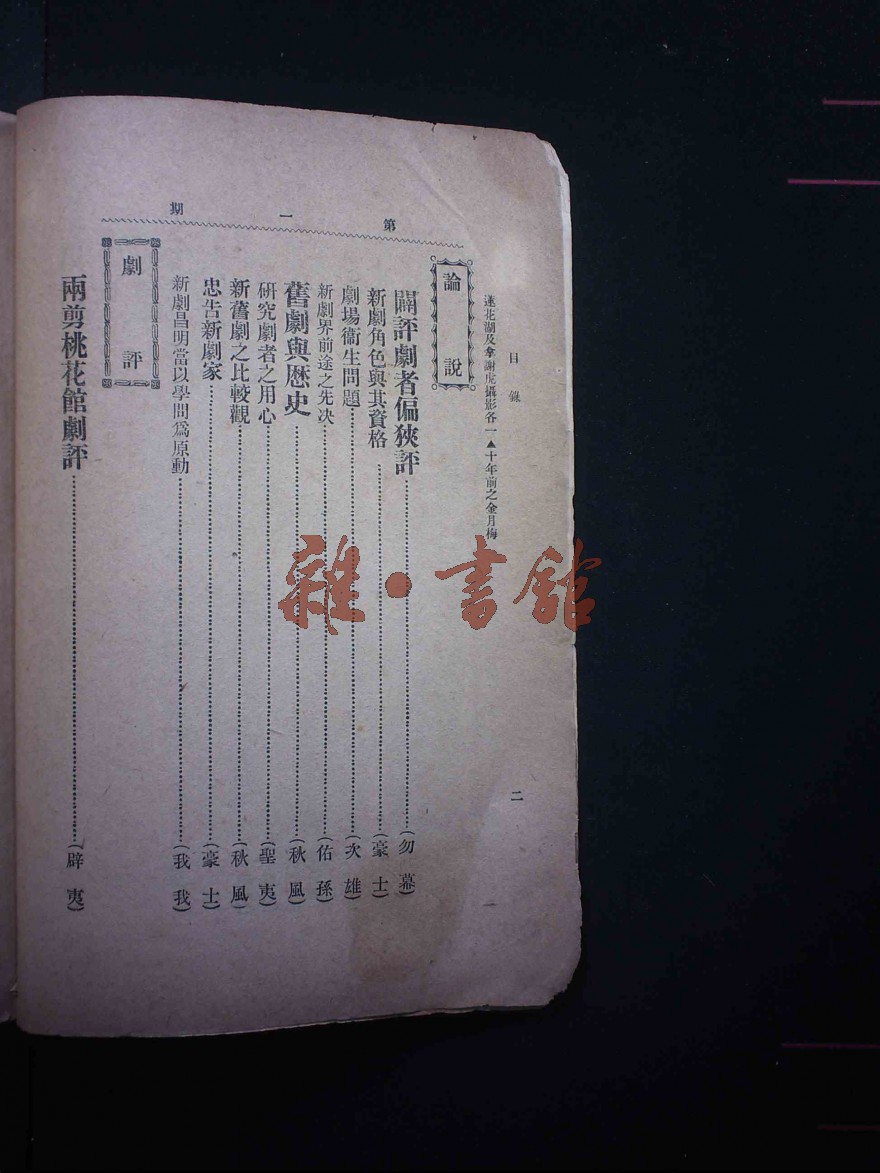 第一期
目錄
二
蓮花湖及拿謝虎攝影各一▲十年前之金月梅
論說
闢評劇者偏狹評(勿幕)
新劇角色與其資格(豪士)
劇場衞生問題(次雄)
新劇界前途之先决(佑孫)
舊劇與歷史(秋風)
研究劇者之用心(聖夷)
新舊劇之比較觀(秋風)
忠告新劇家(豪士)
新劇昌明當以學問爲原動(我我)
劇評
兩剪桃花館劇評(辟夷)
雜·書館